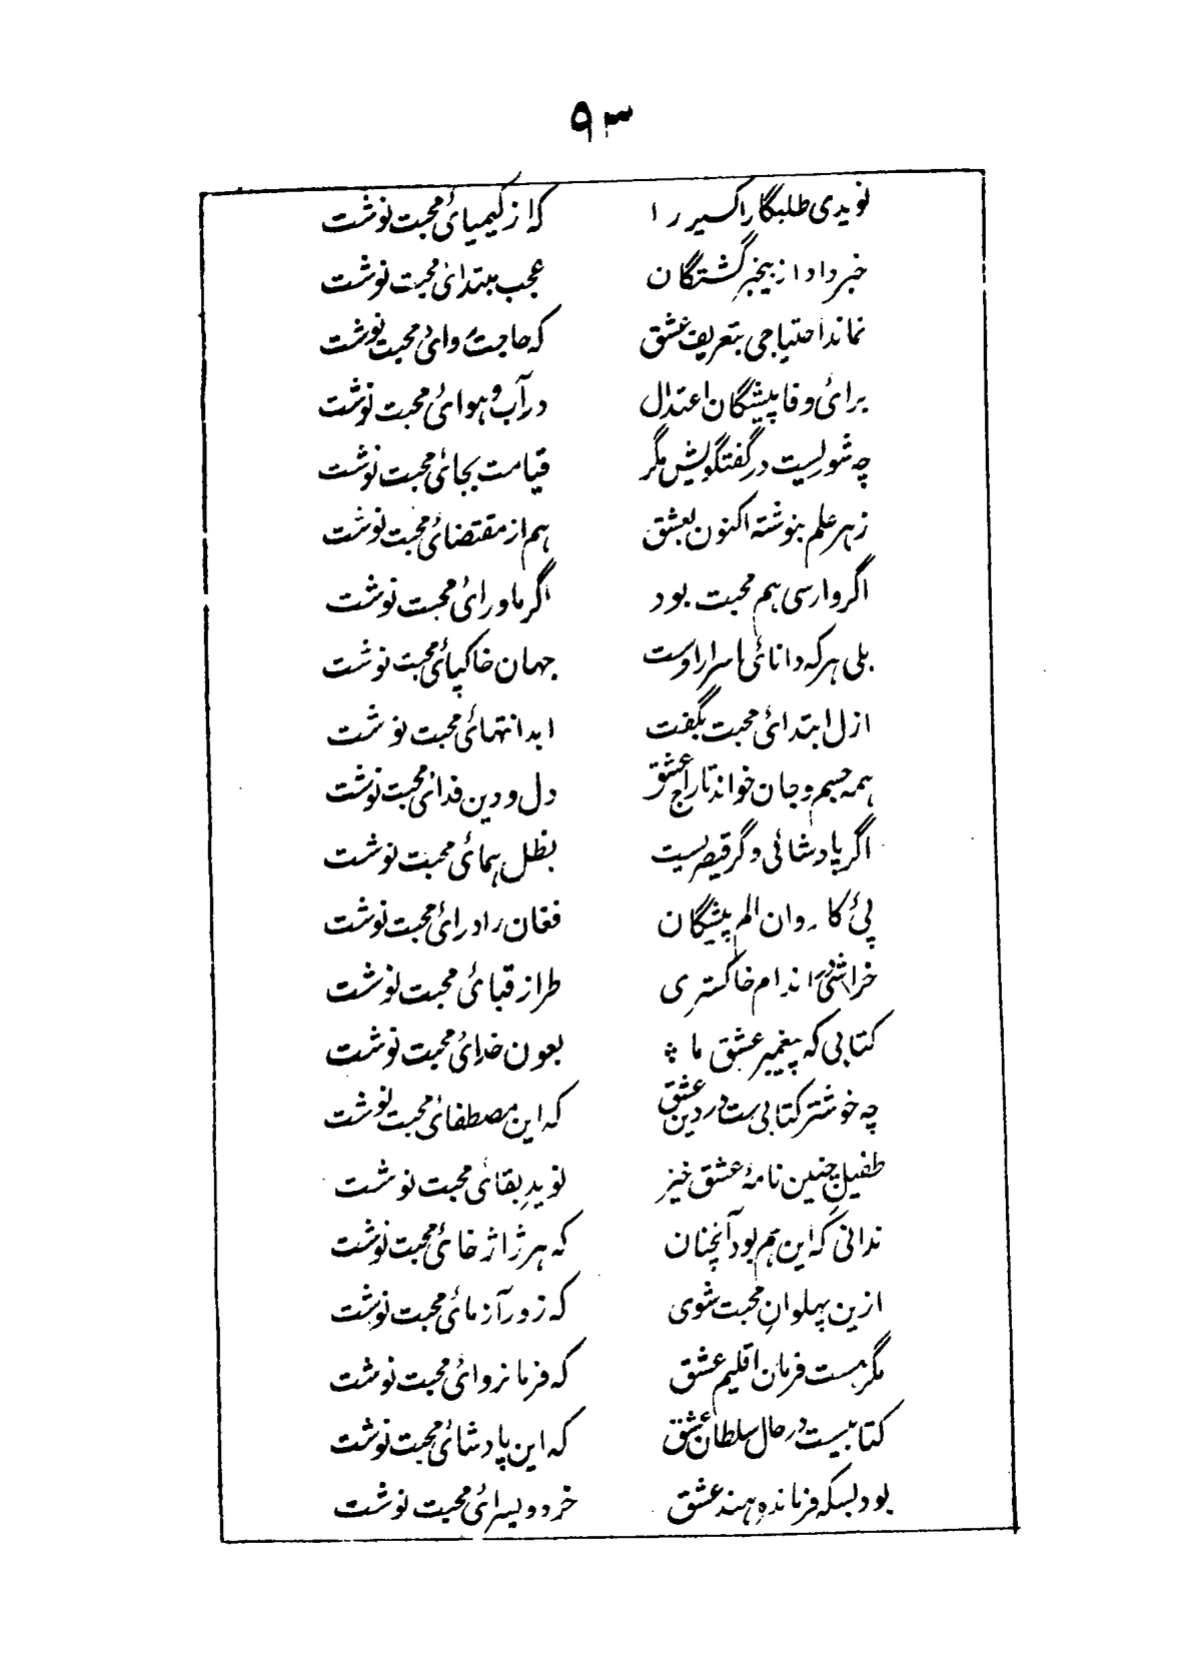 ۹۳
نویدی طلبگار اکسیر را که از کیمیائ محبت نوشت
خبر داد از بیخبر گشتگان عجب مبتدائ محبت نوشت
نماند احتیاجی بتعریف عشق که حاجت روائ محبت نوشت
برائ وفا پیشگان اعتدال در آب و هوائ محبت نوشت
چه شوریست در گفتگویش مگر قیامت بجائ محبت نوشت
ز هر علم بنوشته اکنون بعشق هم از مقتضائ محبت نوشت
اگر وارسی هم محبت بود اگر ماورائ محبت نوشت
بلی هر که دانائ اسرار اوست جهان خاکپائ محبت نوشت
ازل ابتدائ محبت بگفت ابد انتهائ محبت نوشت
همه جسم و جان خواند تاراج عشق دل و دین فدائ محبت نوشت
اگر پادشائی وگر قیصریست بظل همائ محبت نوشت
پئ کاروان الم پیشگان فغان را درائ محبت نوشت
اندام خاکستری طراز قبائ محبت نوشت
کتابی که پیغمبر عشق ما بعون خدائ محبت نوشت
چه خوشتر کتابی ست در دین عشق که این مصطفائ محبت نوشت
طفیلِ چنین نامۂ عشق خیز نویدِ بقائ محبت نوشت
ندانی که این هم بود آنچنان که هر ژاژخائ محبت نوشت
ازین پهلوانِ محبت شوی که زور آزمائ محبت نوشت
مگر هست فرمان اقلیم عشق که فرمانروائ محبت نوشت
کتابیست در حال سلطان عشق که این پادشائ محبت نوشت
بود بسکه فرماندهِ هند عشق خرد ویسرائ محبت نوشت